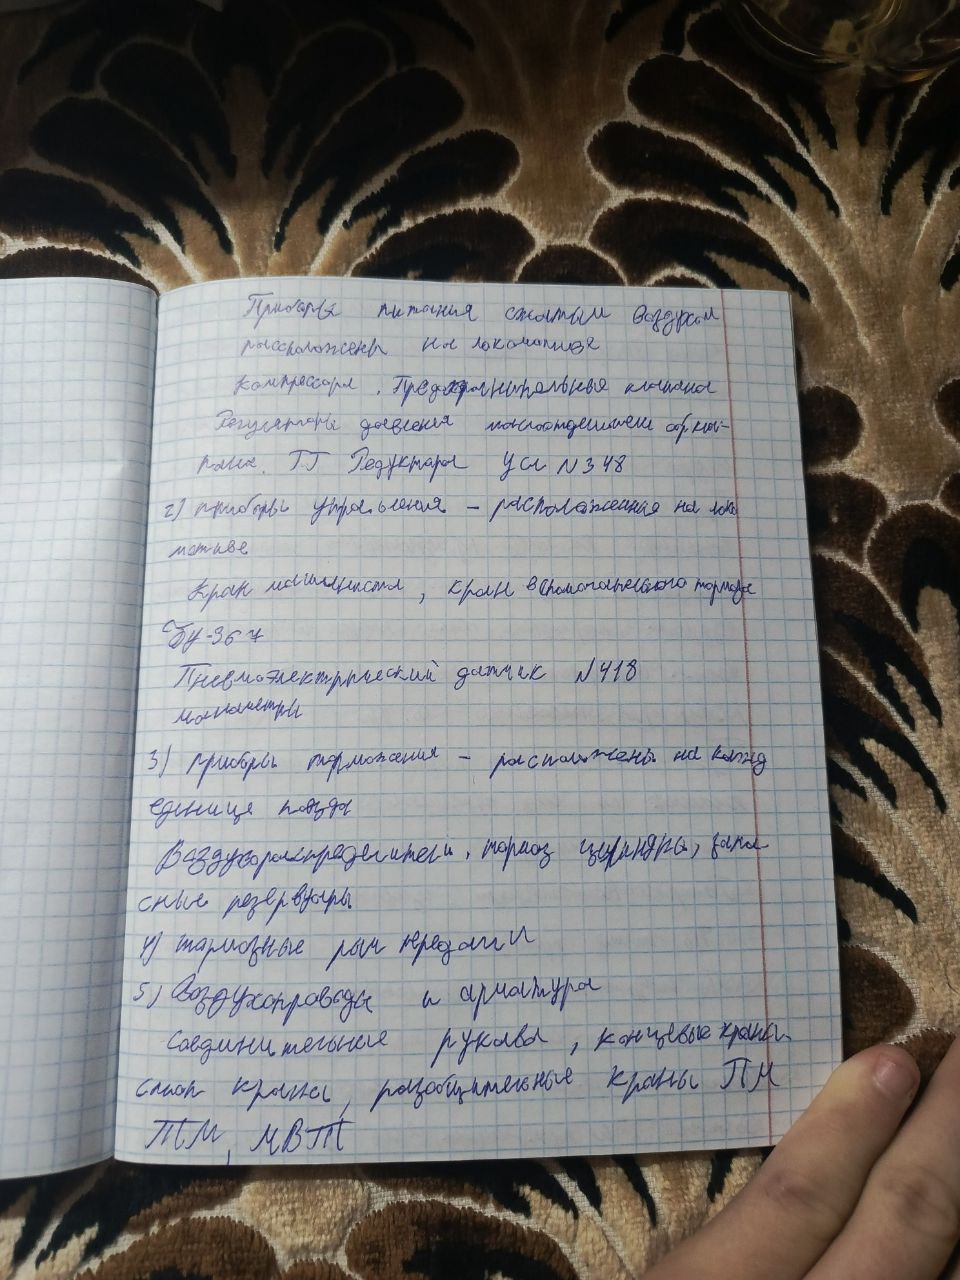 Приборы питания сжатым воздухом
расположены на локомотиве
Компрессора. Предохранительные клапана
Регуляторы давления маслоотделители обр кла-
пана. ГР Редуктора усл №348
2) приборы управления – расположенные на локо
мотиве
Кран машиниста, кран вспомогательного тормоза
БУ-367
Пневмоэлектрический датчик №418
манометры
3) приборы торможения – расположены на кажд
единице поезда
Воздухораспределители, тормоз цилиндры, запа
сные резервуары
4) тормозные рыч передачи
5) Воздухопроводы и арматура
Соединительные рукава, концевые краны
стоп краны, разобщительные краны ПМ
ТМ, МВТ